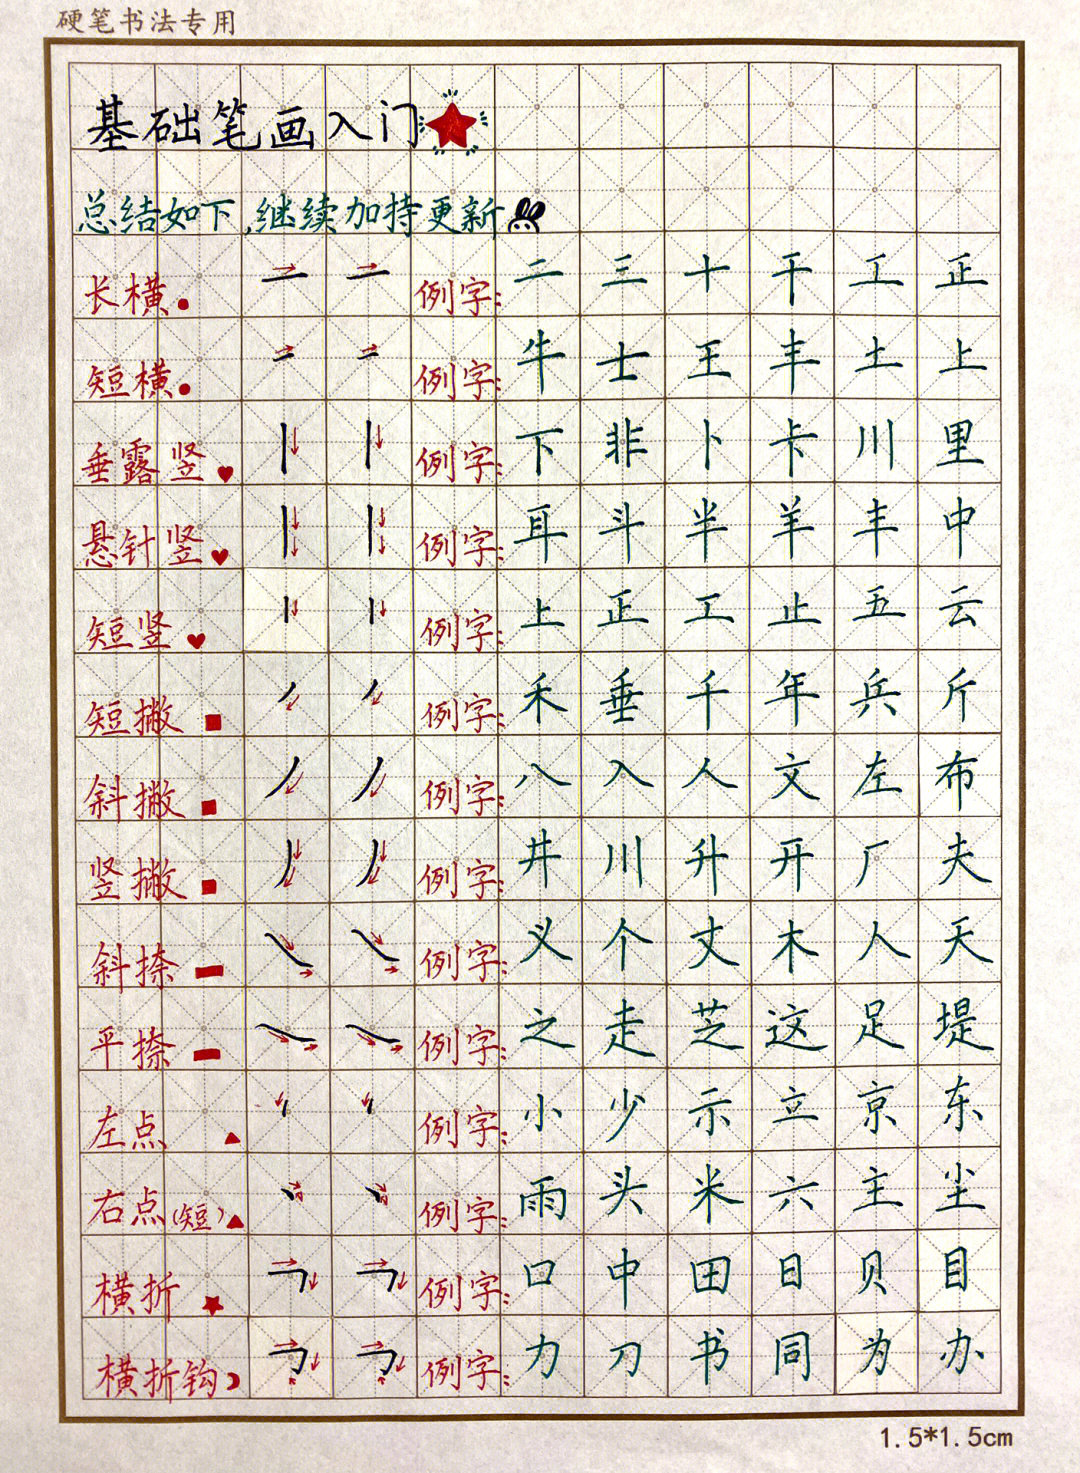 硬笔书法专用
基础笔画入门
总结如下,继续加持更新
长横 例字: 二 三 十 干 工 正
短横 例字: 牛 士 王 丰 土 上
垂露竖 例字: 下 非 卜 卡 川 里
悬针竖 例字: 耳 斗 半 羊 丰 中
短竖 例字: 上 正 工 止 五 云
短撇 例字: 禾 垂 千 年 兵 斤
斜撇 例字: 八 入 人 文 左 布
竖撇 例字: 井 川 升 开 厂 夫
斜捺 例字: 义 个 丈 木 人 天
平捺 例字: 之 走 芝 这 足 堤
左点 例字: 小 少 示 立 京 东
右点(短) 例字: 雨 头 米 六 主 尘
横折 例字: 口 中 田 日 贝 目
横折钩 例字: 力 刀 书 同 为 办
1.5*1.5cm